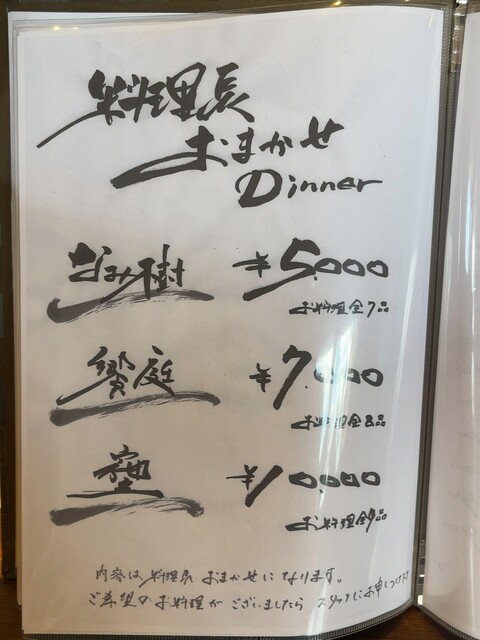 料理長
おまかせ
Dinner
なみ樹 ¥5,000
お料理全7品
饗庭 ¥7,000
お料理全8品
¥10,000
お料理全9品
内容は料理長おまかせになります。
ご希望のお料理がございましたら スタッフにお申しつけ